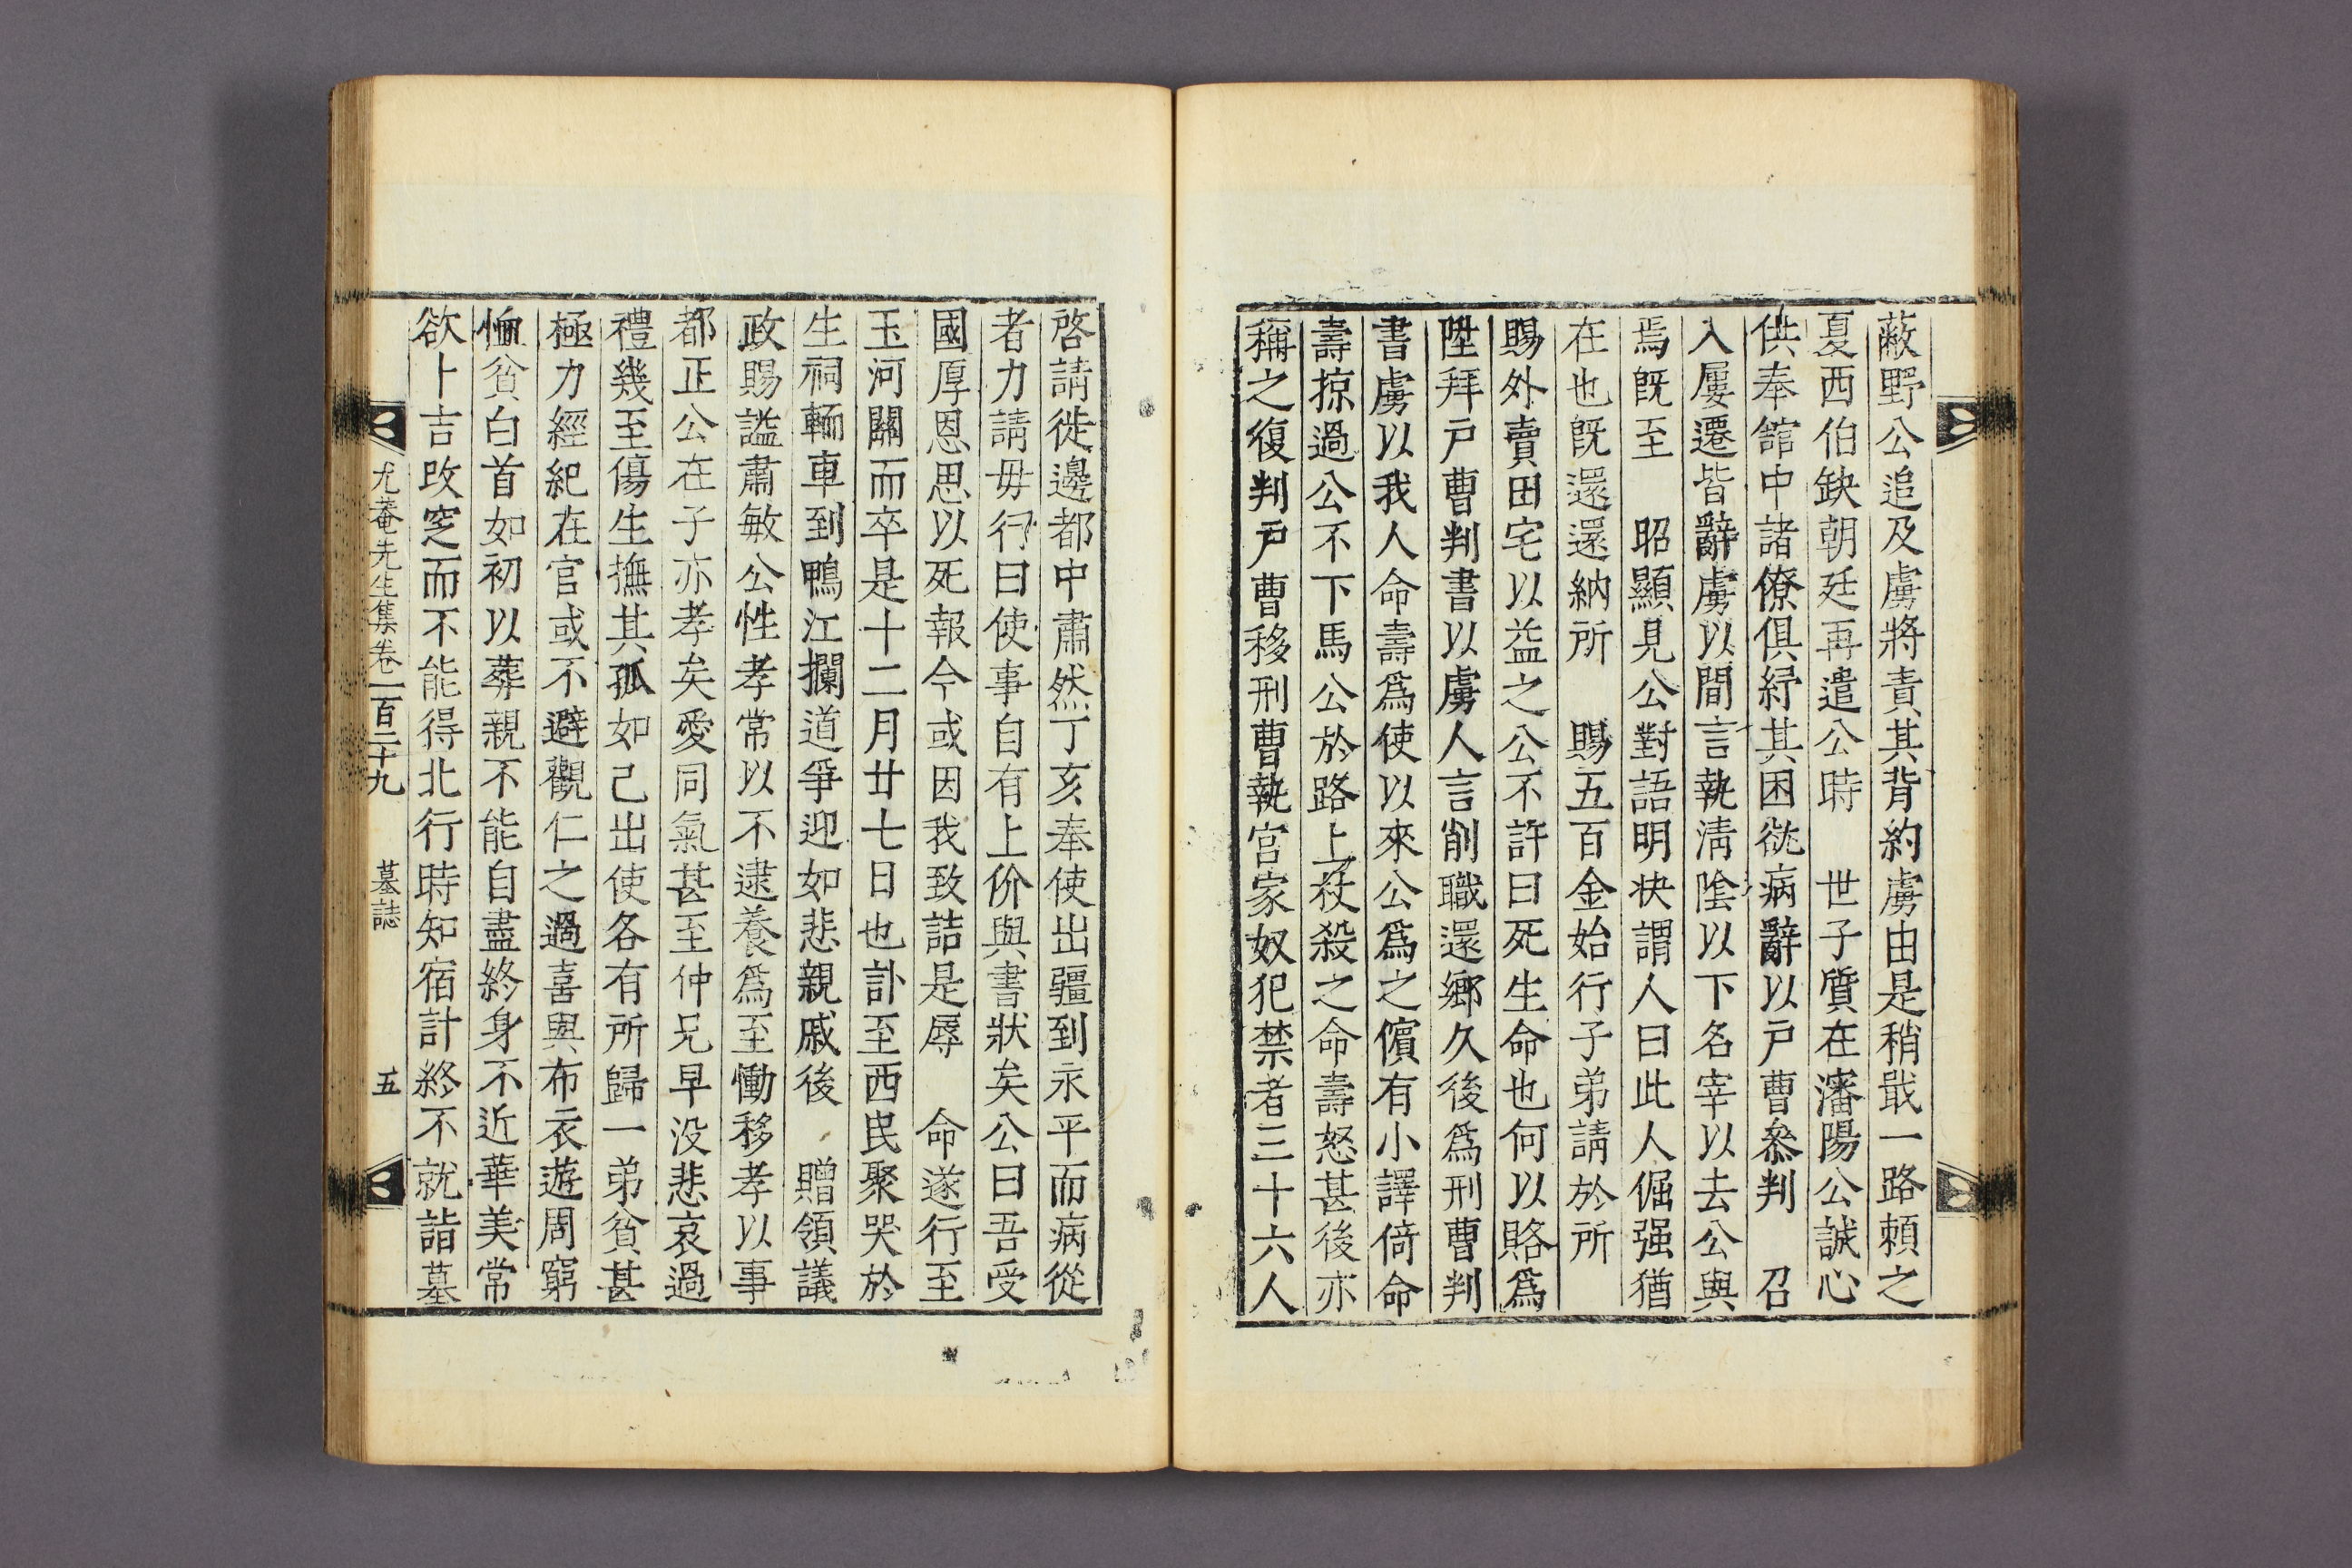 蔽野公追及虜將責其背約虜由是稍戢一路頼之
夏西伯缺朝廷再遣公時　世子質在瀋陽公誠心
供奉館中諸僚俱紓其困從病辭以戸曹叅判　召
入屢遷皆辭虜以間言執淸陰以下名宰以去公與
焉旣至　昭顯見公對語明快謂人曰此人倔强猶
在也旣還還納所　賜五百金始行子弟請於所
賜外賣田宅以益之公不許曰死生命也何以賂爲
陞拜戸曹判書以虜人言削職還鄕久後爲刑曹判
書虜以我人命壽爲使以來公爲之儐有小譯倚命
壽掠過公不下馬公於路上杖殺之命壽怒甚後亦
稱之復判戸曹移刑曹執宮家奴犯禁者三十六人
啓請徙邊都中肅然丁亥奉使出疆到永平而病從
者力請毋行曰使事自有上价與書狀矣公曰吾受
國厚恩思以死報今或因我致詰是辱　命遂行至
玉河關而卒是十二月廿七日也訃至西民聚哭於
生祠輀車到鴨江攔道爭迎如悲親戚後　贈領議
政賜謚肅敏公性孝常以不逮養爲至慟移孝以事
都正公在子亦孝矣愛同氣甚至仲兄早没悲哀過
禮幾至傷生撫其孤如己出使各有所歸一弟貧甚
極力經紀在官或不避觀仁之過喜與布衣遊周窮
恤貧白首如初以葬親不能自盡終身不近華美常
欲卜吉改窆而不能得北行時知宿計終不就詣墓
尤菴先生集卷一百二十九　墓誌　五